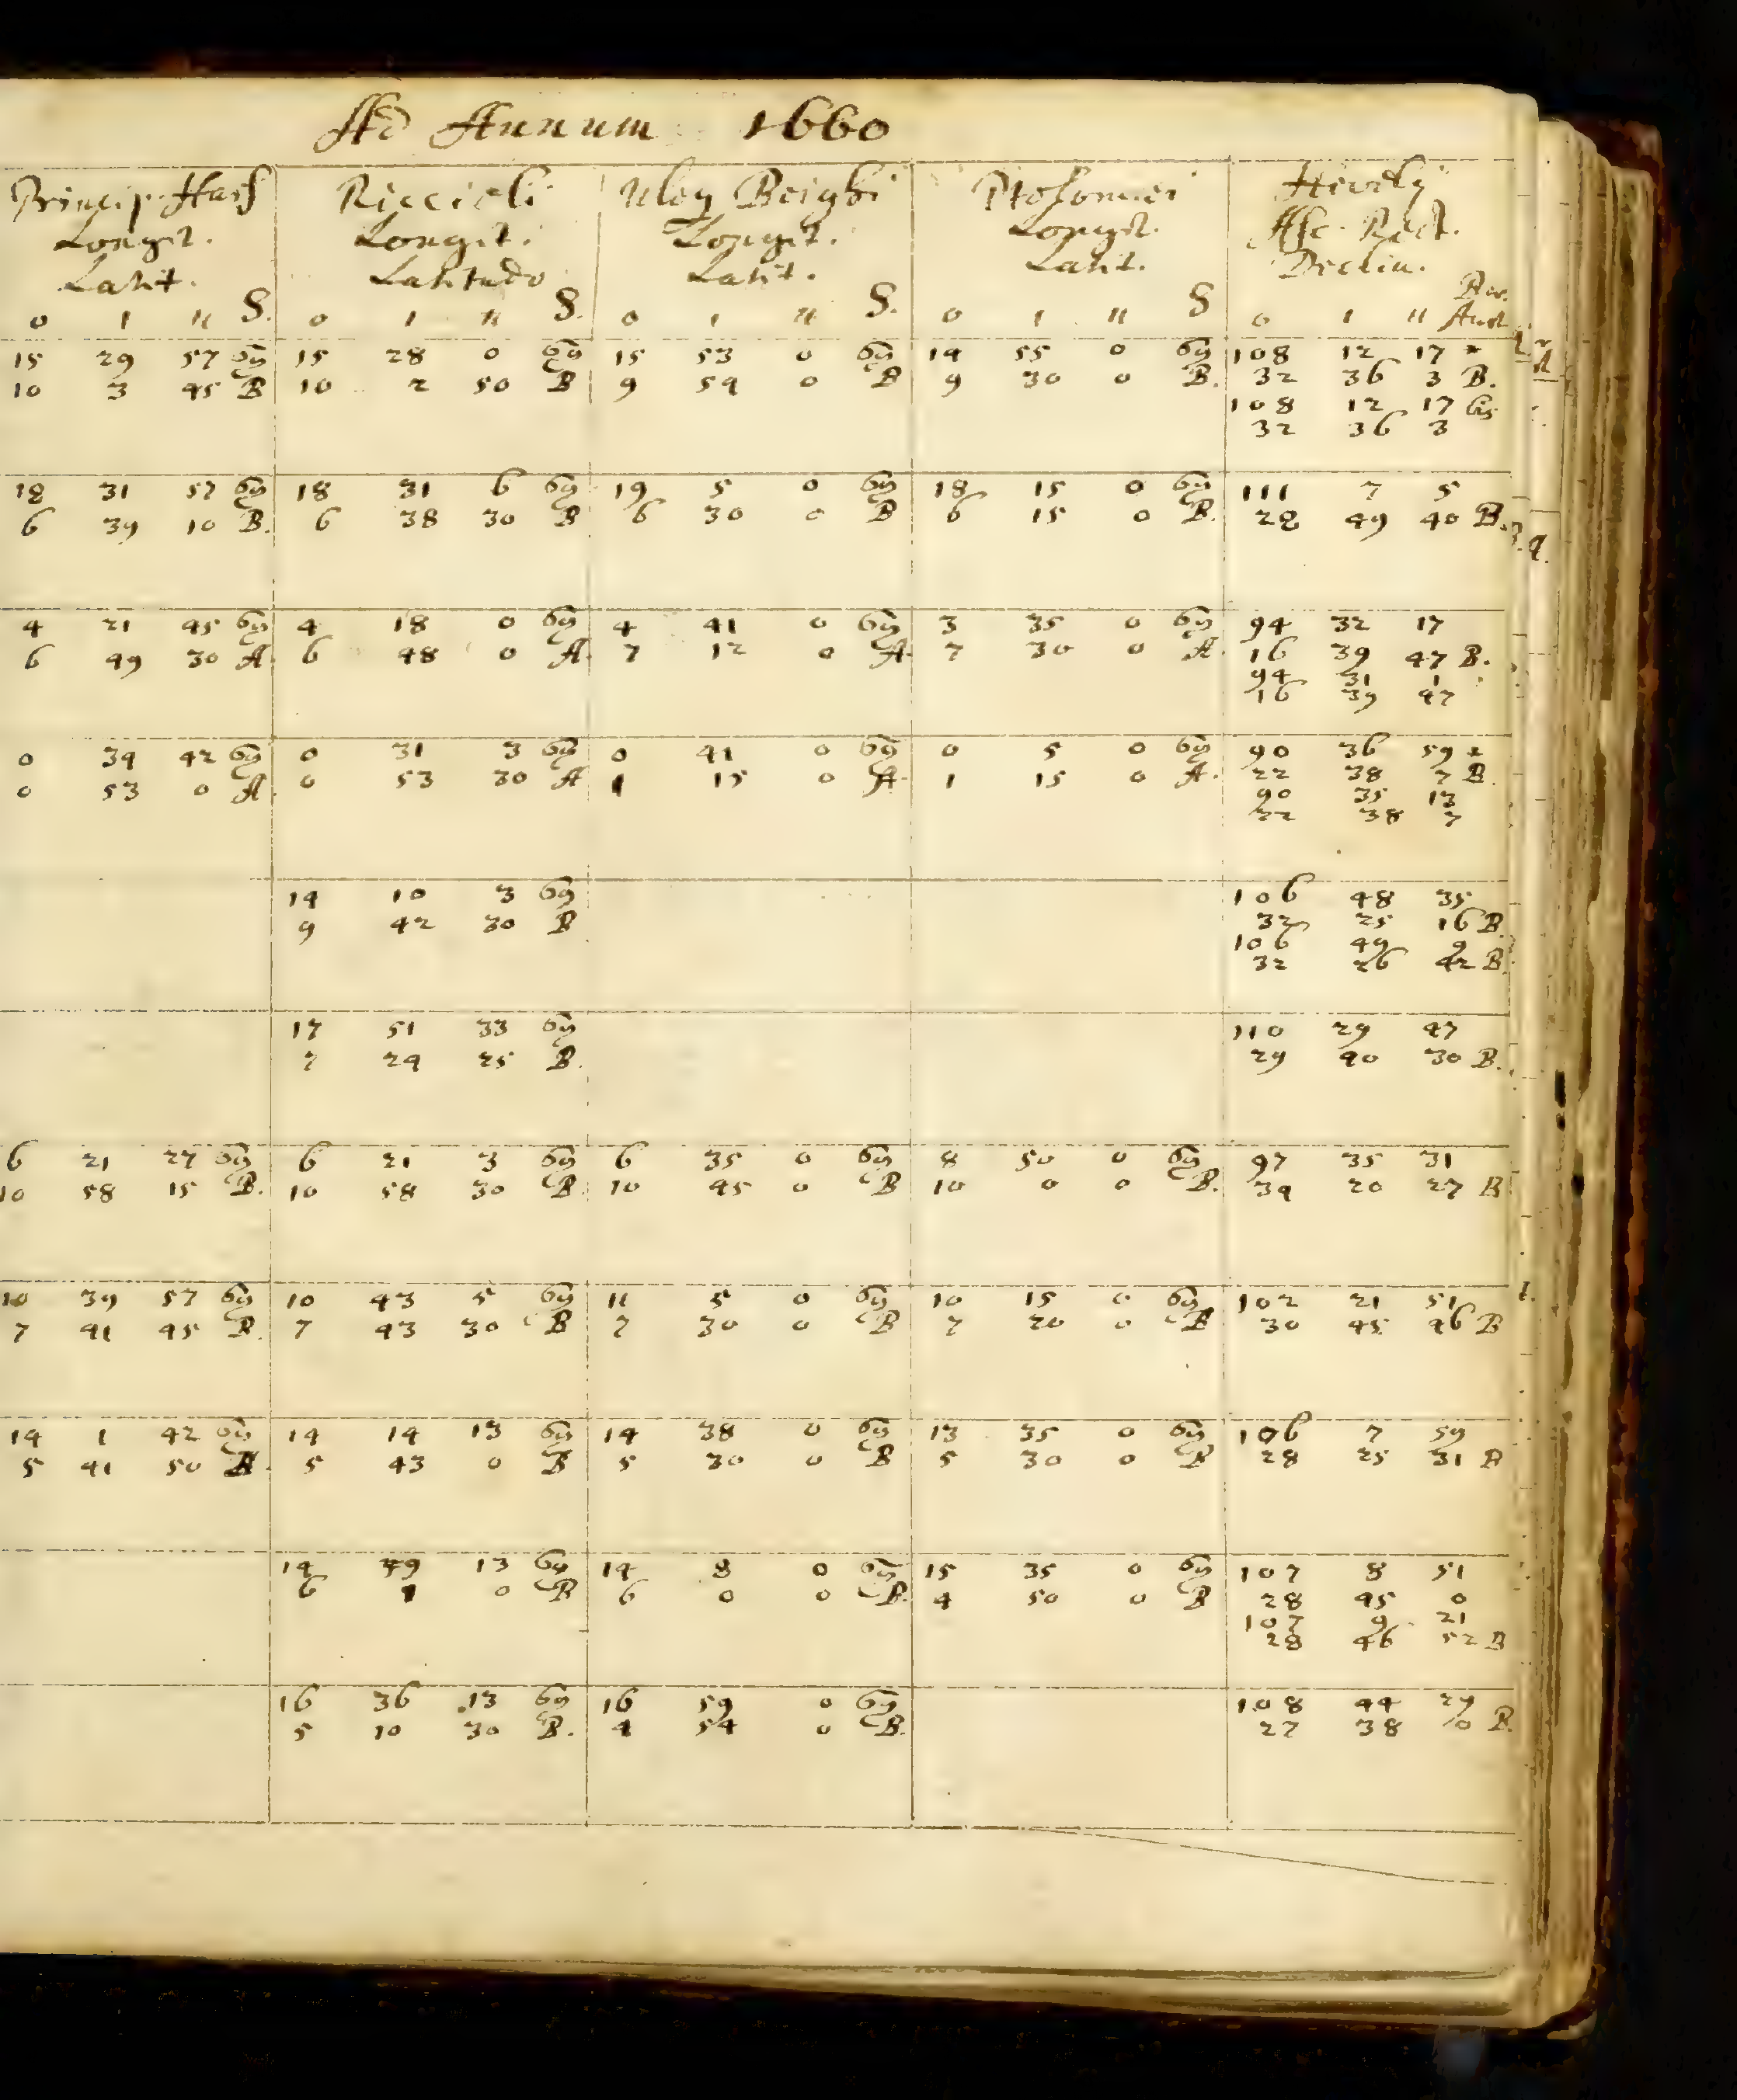 Ad Annum 1660
Princip. Hass Riccioli Uleg Beighi Ptolomei Hevelij
Longit. Longit. Longit. Longit. Asc. Rect.
Latit. Latitudo Latit. Latit. Declin.
Bor.
0 ' " S. 0 ' " S. 0 ' " S. 0 ' " S 0 ' " Aust.
15 29 57 ♋ 15 28 0 ♋ 15 53 0 ♋ 14 55 0 ♋ 108 12 17 *
10 3 45 B 10 2 50 B 9 54 0 B 9 30 0 B. 32 36 3 B.
108 12 17
32 36 3
18 31 57 ♋ 18 31 6 ♋ 19 5 0 ♋ 18 15 0 ♋ 111 7 5
6 39 10 B. 6 38 30 B 6 30 0 B 6 15 0 B. 28 49 40 B.
4 21 45 ♋ 4 18 0 ♋ 4 41 0 ♋ 3 35 0 ♋ 94 32 17
6 49 30 A. 6 48 0 A. 7 12 0 A. 7 30 0 A. 16 39 47 B.
94 31 1
16 39 47
0 34 42 ♋ 0 31 3 ♋ 0 41 0 ♋ 0 5 0 ♋ 90 36 59 *
0 53 0 A. 0 53 30 A 1 15 0 A. 1 15 0 A. 22 38 7 B.
90 35 13
22 38 7
14 10 3 ♋ 106 48 35
9 42 30 B 32 25 16 B.
106 49 9
32 26 42 B
17 51 33 ♋ 110 29 47
7 24 25 B. 29 40 30 B.
6 21 27 ♋ 6 21 3 ♋ 6 35 0 ♋ 8 50 0 ♋ 97 35 31
10 58 15 B. 10 58 30 B. 10 45 0 B 10 0 0 B. 34 20 27 B
10 39 57 ♋ 10 43 5 ♋ 11 5 0 ♋ 10 15 0 ♋ 102 21 51
7 41 45 B. 7 43 30 B 7 30 0 B 7 20 0 B 30 45 46 B
14 1 42 ♋ 14 14 13 ♋ 14 38 0 ♋ 13 35 0 ♋ 106 7 59
5 41 50 B. 5 43 0 B 5 30 0 B 5 30 0 B 28 25 31 B
14 49 13 ♋ 14 8 0 ♋ 15 35 0 ♋ 107 8 51
6 1 0 B 6 0 0 B. 4 50 0 B 28 45 0
107 9 21
28 46 52 B
16 36 13 ♋ 16 59 0 ♋ 108 44 29
5 10 30 B. 4 54 0 B. 27 38 10 B.